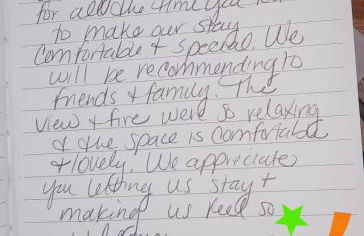 for all the time you
to make our stay
comfortable + special. We
will be recommending to
friends + family. The
view + fire were so relaxing
+ the space is comfortable
+ lovely. We appreciate
you letting us stay +
making us feel so